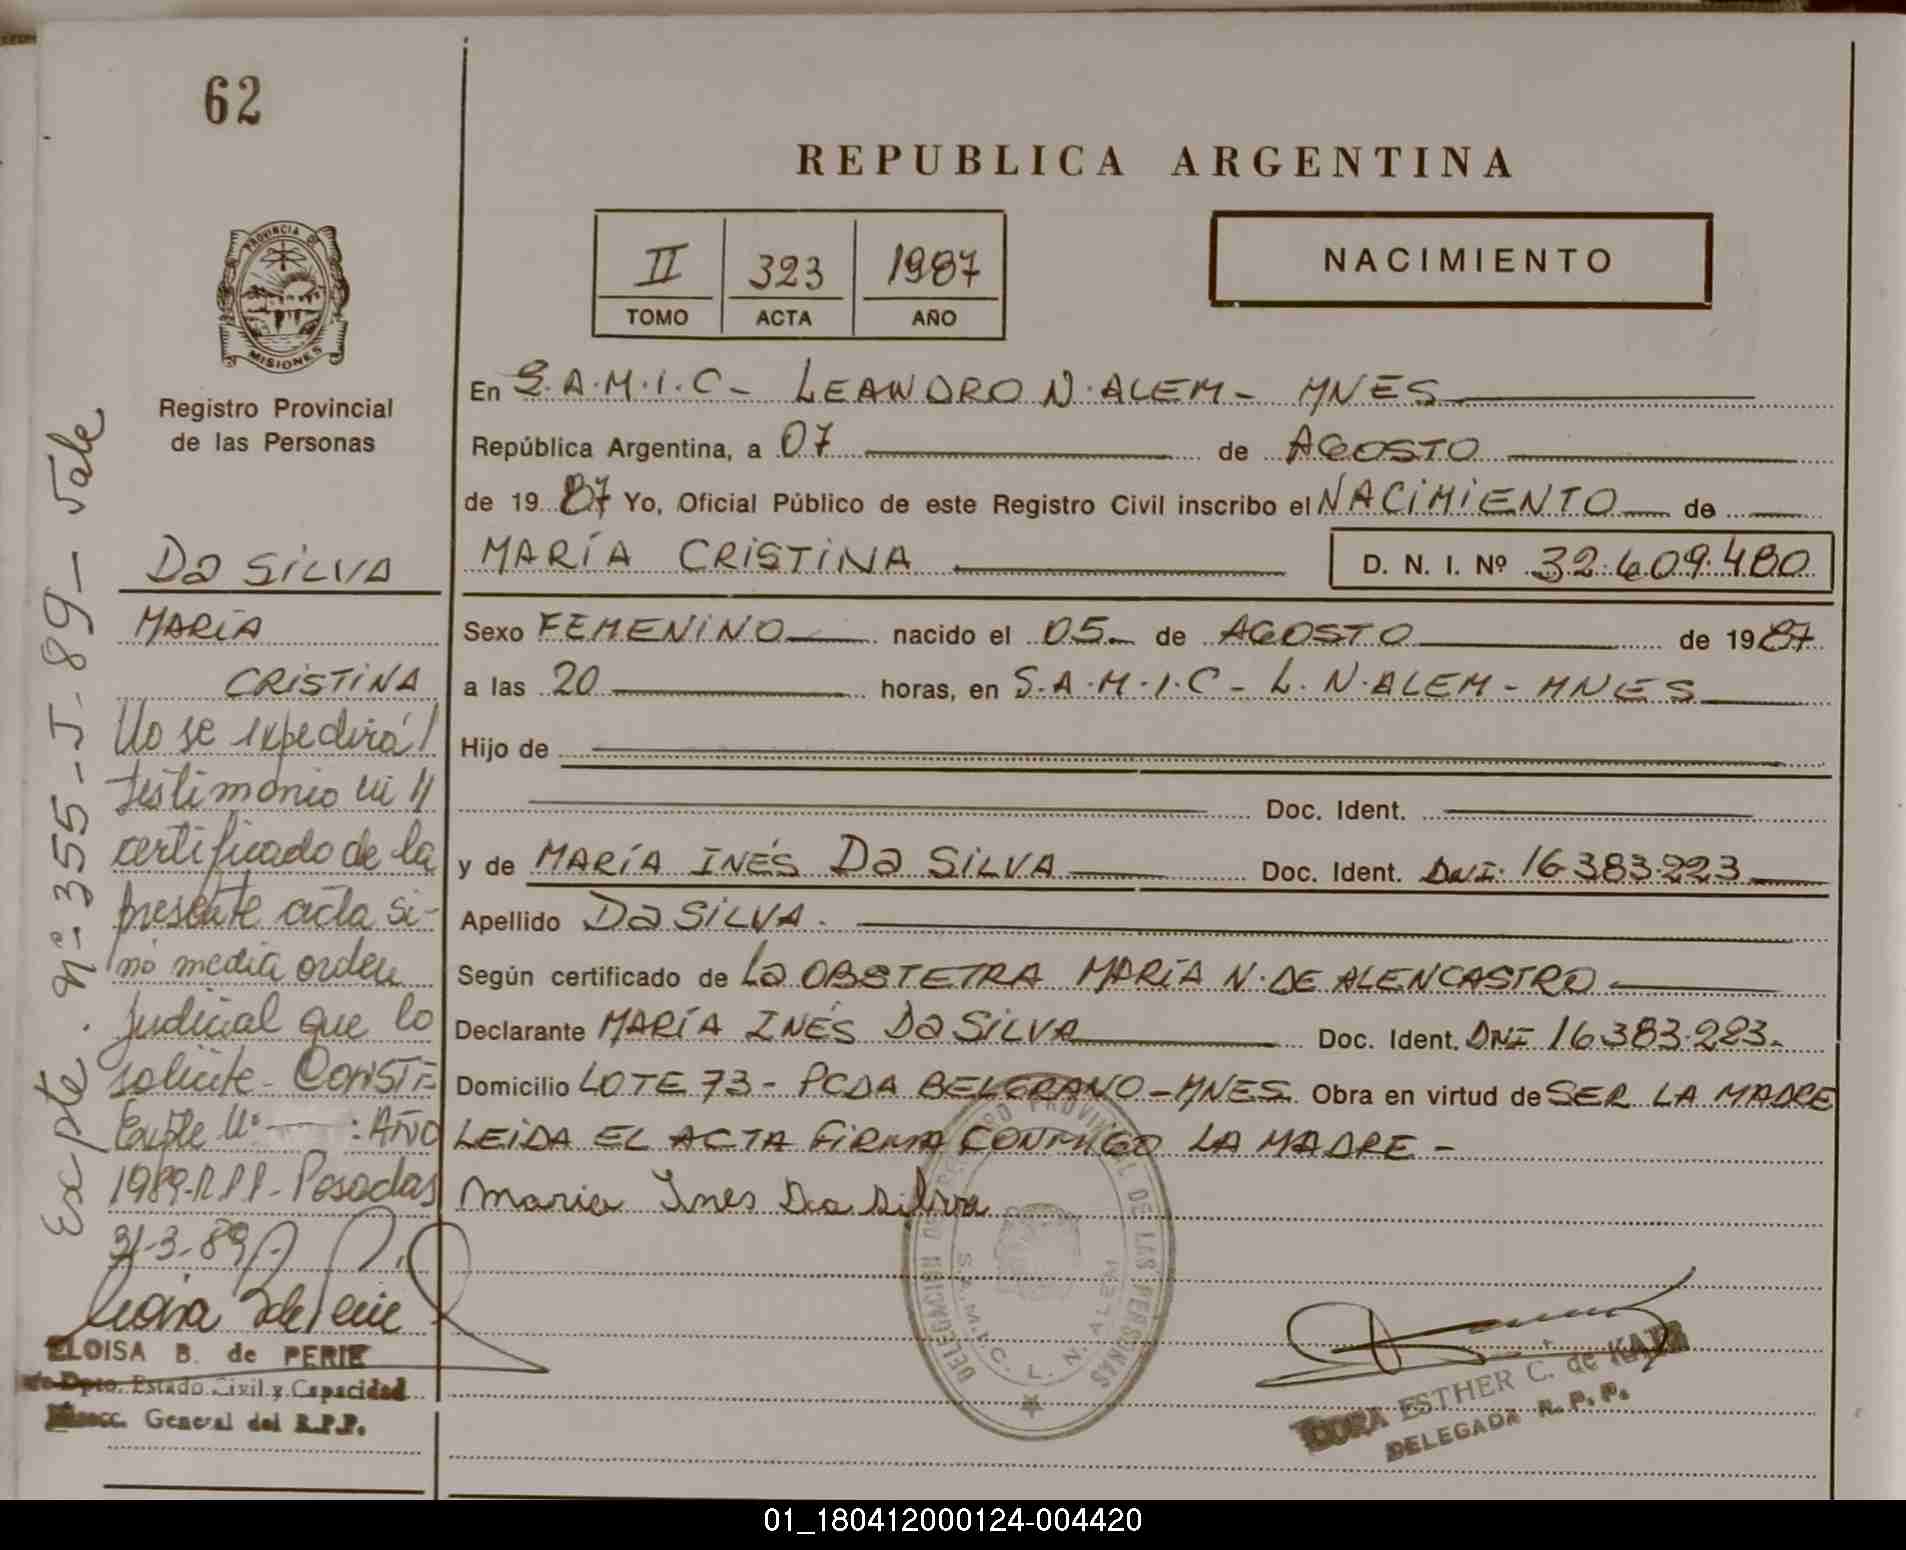 62
REPUBLICA ARGENTINA
II 323 1987
TOMO ACTA AÑO
NACIMIENTO
PROVINCIA DE
MISIONES
Registro Provincial
de las Personas
Expte. Nº 355-J-89- Vale
Da SILVA
MARÍA
CRISTINA
No se expedirá/
testimonio ni //
certificado de la
presente acta si-
no media orden
judicial que lo
solicite- CONSTE
Expte Nº : AÑO
1989-R.P.P.- Posadas
31-3-89
ELOISA B. de PERIE
Dpto. Estado Civil y Capacidad
Direcc. General del R.P.P.
En S.A.M.I.C- LEANDRO N. ALEM- MNES
República Argentina, a 07 de AGOSTO
de 1987 Yo, Oficial Público de este Registro Civil inscribo el NACIMIENTO de
MARÍA CRISTINA D. N. I. Nº 32.609.480
Sexo FEMENINO nacido el 05 de AGOSTO de 1987
a las 20 horas, en S.A.M.I.C- L. N. ALEM- MNES
Hijo de
Doc. Ident.
y de MARÍA INÉS Da SILVA Doc. Ident. DNI. 16.383.223
Apellido Da SILVA.
Según certificado de La OBSTETRA MARÍA N. DE ALENCASTRO
Declarante MARÍA INÉS Da SILVA Doc. Ident. DNI 16.383.223.
Domicilio LOTE 73- PCDA BELGRANO-MNES Obra en virtud de SER LA MADRE
LEIDA EL ACTA FIRMA CONMIGO LA MADRE-
Maria Ines Da Silva
DELEGACION DEL REGISTRO PROVINCIAL DE LAS PERSONAS
S.A.M.I.C. L. N. ALEM
DORA ESTHER C. de
DELEGADA R.P.P.
01_180412000124-004420